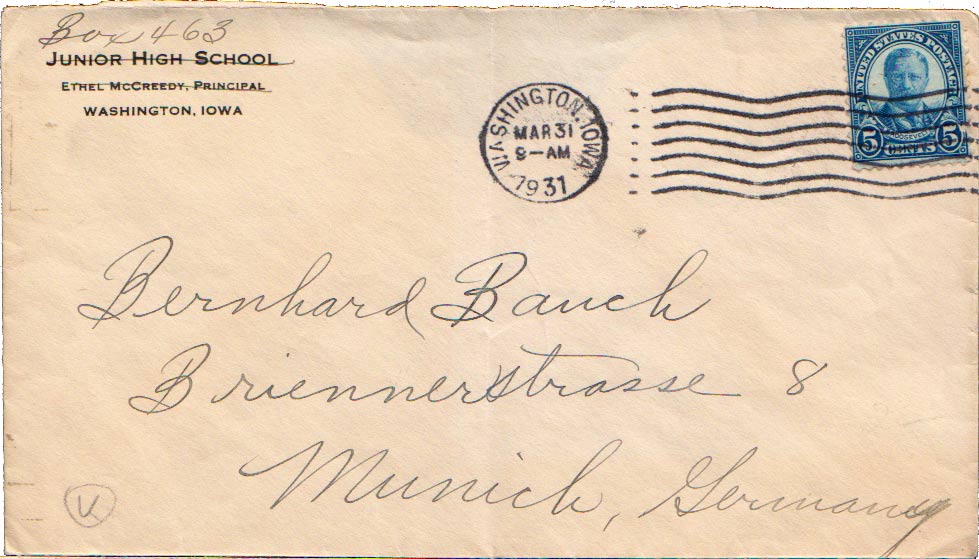 Box 463
JUNIOR HIGH SCHOOL
ETHEL MCCREEDY, PRINCIPAL
WASHINGTON, IOWA
WASHINGTON, IOWA
MAR 31
9-AM
1931
UNITED STATES POSTAGE
ROOSEVELT
5 CENTS 5
Bernhard Bauch
Briennerstrasse 8
Munich, Germany
V